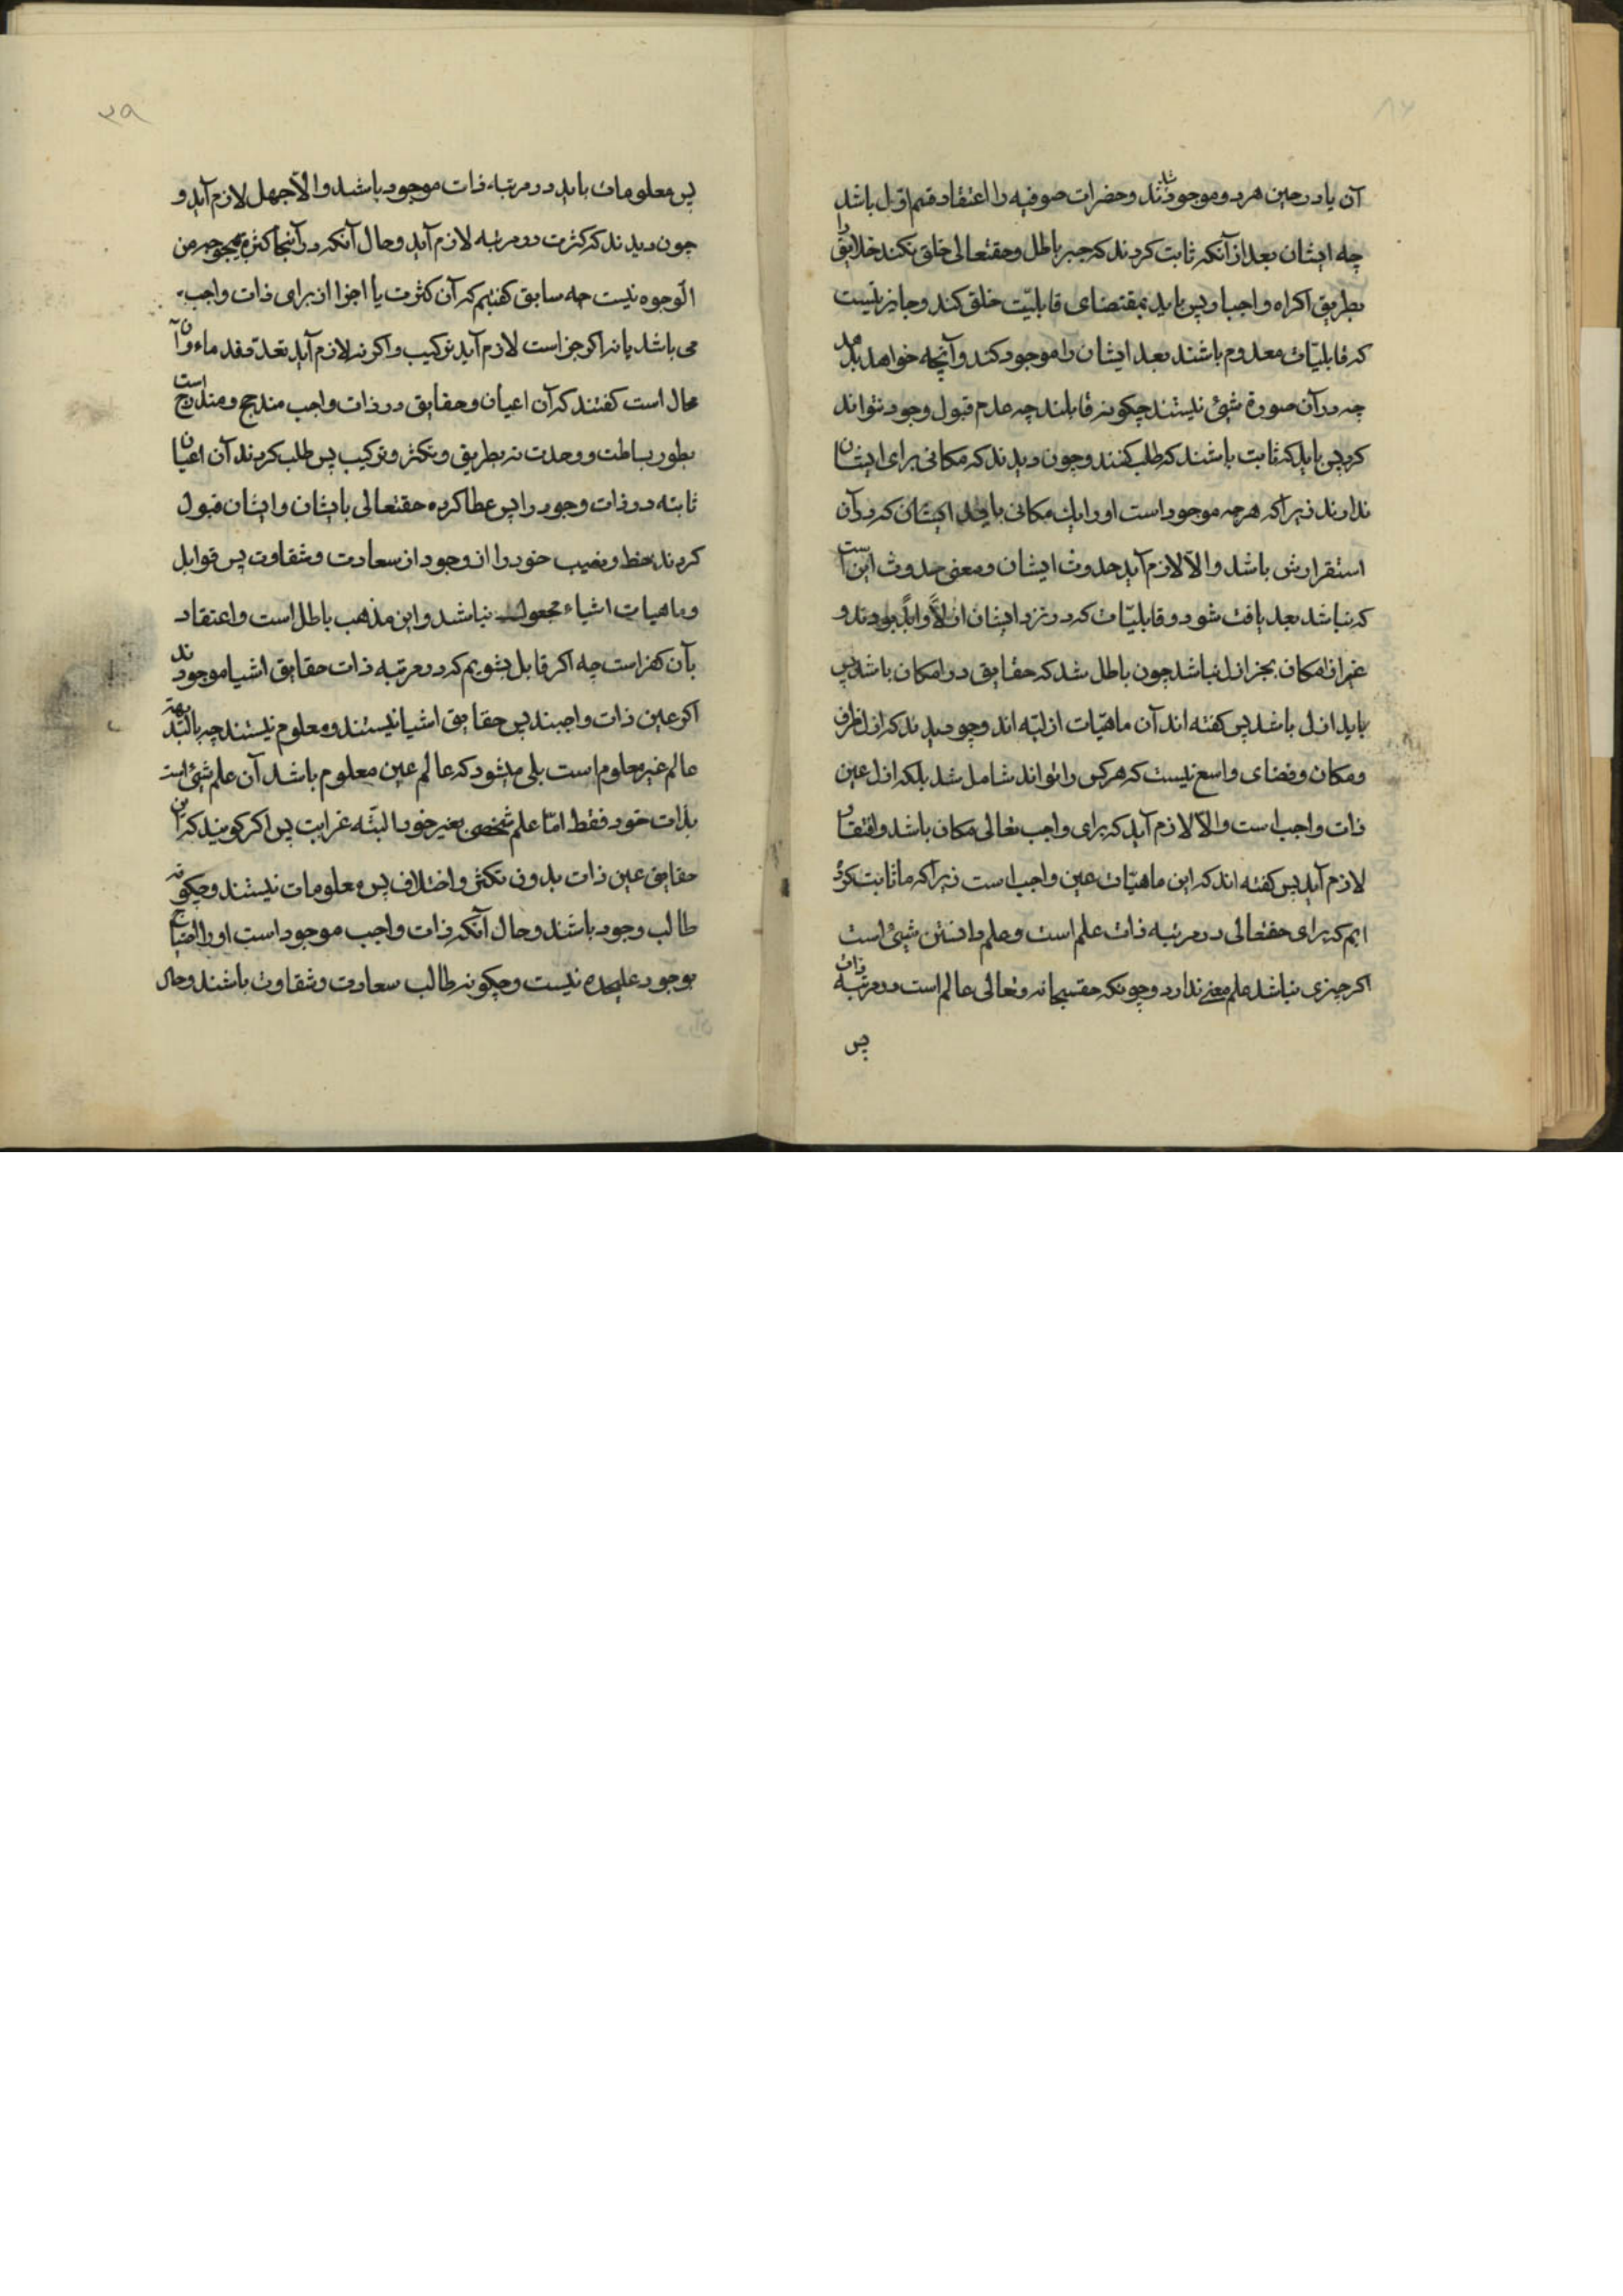 آن یا در حین هر دو موجودند شد و حضرات صوفیه را اعتقاد قسم اوّل باشد
چه ایشان بعد از آنکه ثابت کردند که جبر باطل و حقتعالی خلق نکند خلایق را
بطریق اکراه و اجبار پس باید بمقتضای قابلیّت خلق کند و جایز نیست
که قابلیّات معدوم باشند بعد ایشان را موجود کند و آنچه خواهد بدهد
چه در آن صورة شیئ نیستند چگونه قابلند چه عدم قبول وجود نتواند
کرد پس باید که ثابت باشند که طلب کنند و چون دیدند که مکانی برای ایشان
ندارند زیرا که هر چه موجود است او را یک مکانی باید ایشان که در آن
استقرارش باشد و الّا لازم آید حدوث ایشان و معنی حدوث این است
که نباشد بعد یافت شود و قابلیّات که در نزد ایشان ازلاً و ابداً بودند و
غیر از امکان بجز ازل نباشد چون باطل شد که حقایق در امکان باشد پس
باید ازل باشد پس گفته اند آن ماهیّات ازلیّه اند و چو دیدند که ازل ظرف
و مکان و فضای واسع نیست که هر کس را تواند شامل شد بلکه ازل عین
ذات واجب است و الّا لازم آید که برای واجب تعالی مکان باشد و افتقار
لازم آید پس گفته اند که این ماهیّات عین واجب است زیرا که ما ثابت کرده
ایم که برای حقتعالی در مرتبه ذات علم است و علم دانستن شیئ است
اگر چیزی نباشد علم معنی ندارد و چونکه حقسبحانه و تعالی عالم است در مرتبه ذات
پس
۳۹
پس معلومات باید در مرتبه ذات موجود باشند و الّا جهل لازم آید و
چون دیدند که کثرت در مرتبه لازم آید و حال آنکه در آنجا کثرة بوجه من
الوجوه نیست چه سابق گفتیم که آن کثرت یا اجزا از برای ذات واجب
می باشد یا نه اگر جز است لازم آید ترکیب و اگر نه لازم آید تعدّد قدماء و آن
محال است گفتند که آن اعیان و حقایق در ذات واجب مندمج و مندرج است
بطور بساطت و وحدت نه بطریق و تکثر و ترکیب پس طلب کردند آن اعیان
ثابته در ذات وجود را پس عطا کرده حقتعالی بایشان و ایشان قبول
کردند حظ و نصیب خود را از وجود از سعادت و شقاوت پس قوابل
و ماهیات اشیاء مجعول نباشد و این مذهب باطل است و اعتقاد
بآن کفر است چه اگر قابل بشویم که در مرتبه ذات حقایق اشیا موجودند
اگر عین ذات واجبند پس حقایق اشیا نیستند و معلوم نیستند چه بالبدیهة
عالم غیر معلوم است بلی میشود که عالم عین معلوم باشد آن علم شیئ است
بذات خود فقط امّا علم شخصی بغیر خود البتّه غرابت پس اگر گویند که این
حقایق عین ذات بدون تکثر و اختلاف پس معلومات نیستند و چگونه
طالب وجود باشند و حال آنکه ذات واجب موجود است او را احتیاج
بوجود علیحده نیست و چگونه طالب سعادت و شقاوت باشند و حال